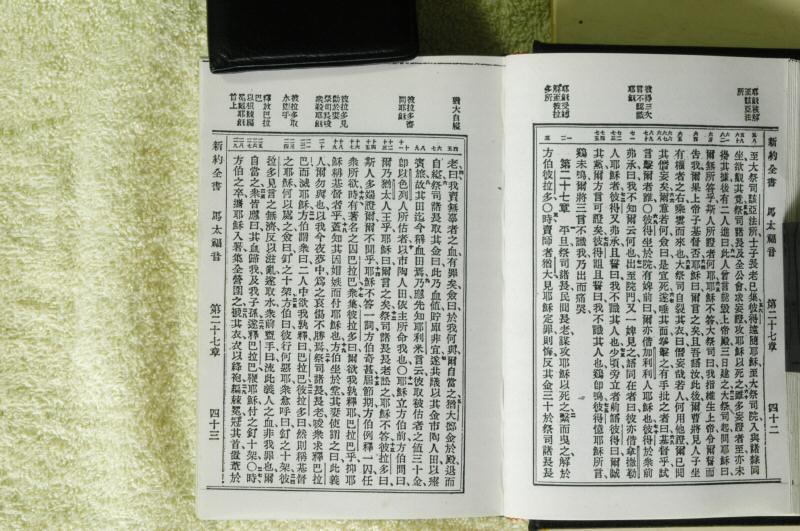 耶穌被解
至該亞法
所
彼得三次
言不識
耶穌
耶穌受縛
解至彼拉
多所
新約全書 馬太福音 第二十七章 四十二
至大祭司該亞法所士子長老已集彼得遙隨耶穌至大祭司院入與諸隸同
坐欲觀其竟祭司諸長及全公會求妄證攻耶穌以死之雖多妄證者至亦未
得其據後有二人進曰此人曾言能毀上帝殿三日建之大祭司起問耶穌曰
爾無所答乎斯人所證者何耶穌不答大祭司曰我指維生上帝令爾誓而
告我爾果上帝子基督否耶穌曰爾言之矣且吾語汝此後爾曹將見人子坐
有權者之右乘雲而來也大祭司自裂其衣曰僭妄哉若人何用他證爾已聞
其僭妄矣爾意若何僉曰是宜死遂唾其面拳擊之有手批之者曰基督乎試
言擊爾者誰○彼得坐於院有婢前曰爾亦偕加利利人耶穌也彼得於衆前
弗承曰我不知爾云何也出至院門又一婢見之語同在者曰彼亦偕拿撒勒
人耶穌者彼得又弗承且誓曰我不識其人也少頃旁立者前語彼得曰爾誠
其黨爾方言可證矣彼得詛且誓曰我不識其人也雞卽鳴彼得憶耶穌所言
雞未鳴爾將三言不識我乃出而痛哭
第二十七章 平旦祭司諸長民間長老謀攻耶穌以死之繫而曳之解於
方伯彼拉多○時賣師者猶大見耶穌定罪則悔反其金三十於祭司諸長長
猶大自縊
彼拉多審
問耶穌
彼拉多見
祭司長唆
衆殺耶穌
彼拉多取
水盥手
釋放巴拉
巴
冕戲耶穌
老曰我賣無辜者之血有罪矣僉曰於我何與爾自當之猶大擲金於殿退而
自縊祭司諸長取其金曰此乃血値貯庫非宜遂共議以其金市陶人田以瘞
賓旅故其田迄今稱血田焉乃應先知耶利米言云彼取被估者之値三十金
卽以色列人所估者以市陶人田依主所命我也○耶穌立方伯前方伯問曰
爾乃猶太人王乎耶穌曰爾言之矣祭司長長老訟之耶穌不答彼拉多曰
斯人多端證爾爾不聞乎耶穌不答一詞方伯奇甚屆節期方伯例釋一囚任
衆所欲時有著名之囚巴拉巴衆集彼拉多曰爾欲我孰釋耶巴拉巴乎抑耶
穌稱基督者乎蓋知其因媢嫉而付耶穌也方伯坐於堂其妻使謂之曰此義
人爾勿與也以我今夜夢中爲之哀傷不勝焉祭司諸長長老唆衆求釋巴拉
巴而滅耶穌方伯謂衆曰二人中欲我孰釋曰巴拉巴彼拉多曰然則稱基督
之耶穌何以處之僉曰釘之十架方伯曰彼行何惡耶衆愈呼曰釘之十架彼
拉多見言之無濟反以滋亂遂取水衆前盥手曰流此義人之血非我罪也爾
自當之衆皆應曰其血歸我及我子孫遂釋巴拉巴鞭耶穌付之釘十架○時
方伯之卒攜耶穌入署集全營圍之褫其衣衣以絳袍編棘冕冠其首置葦於
新約全書 馬太福音 第二十七章 四十三